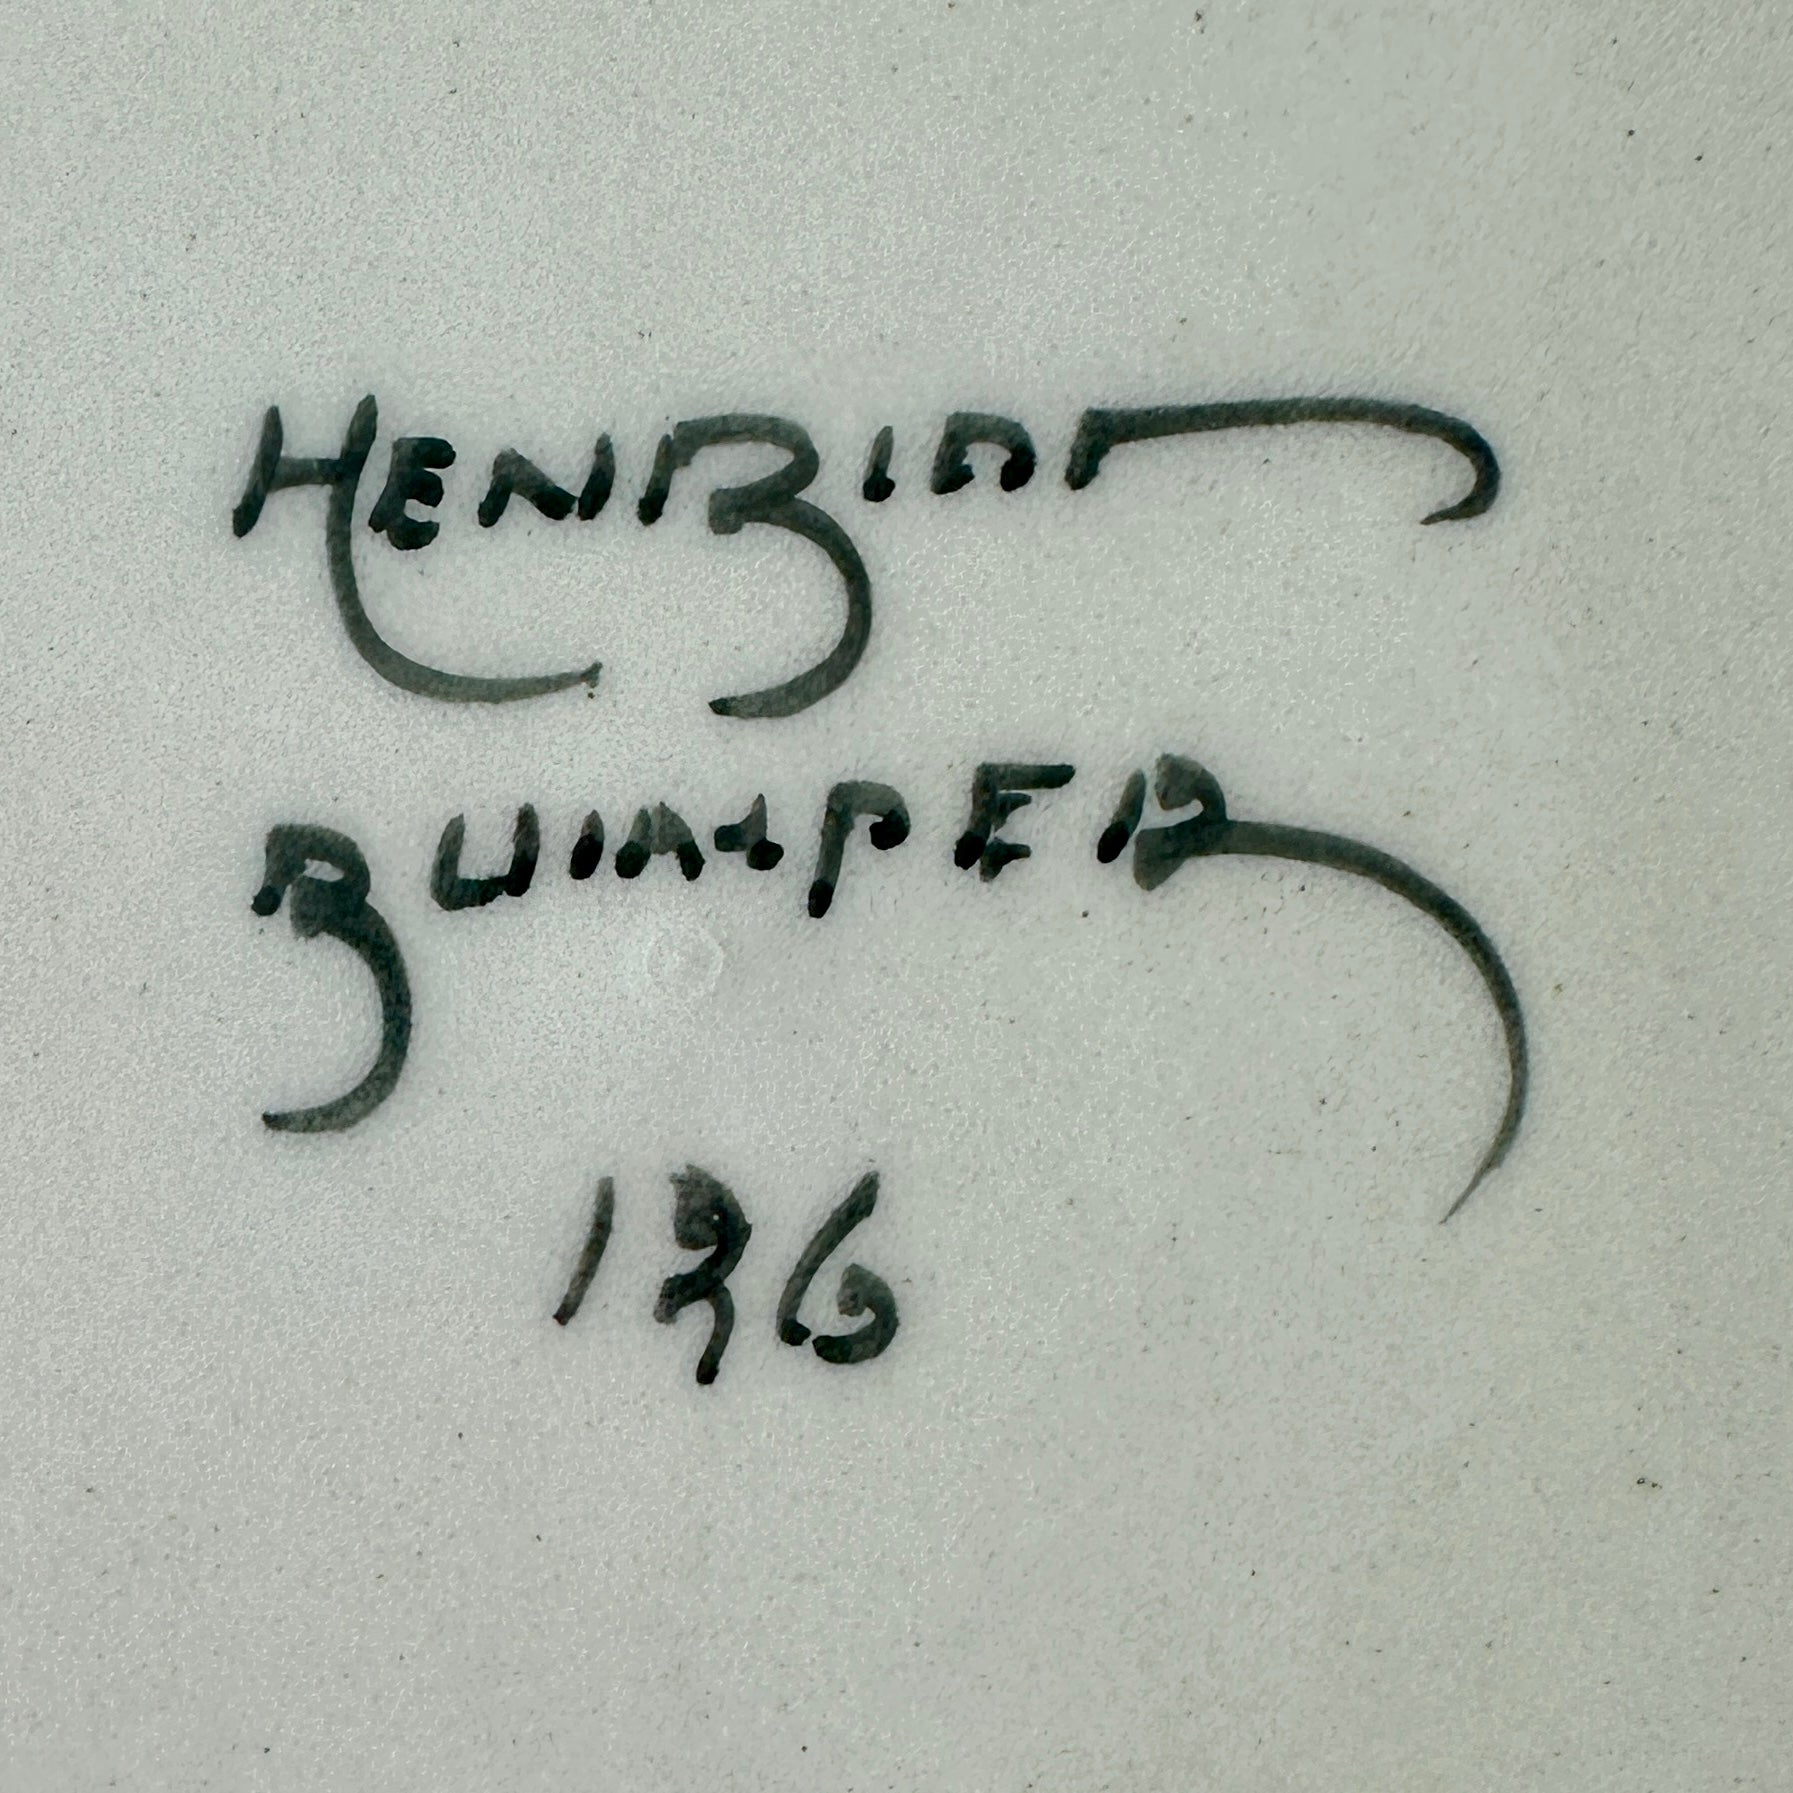 HENRIOT
QUIMPER
136